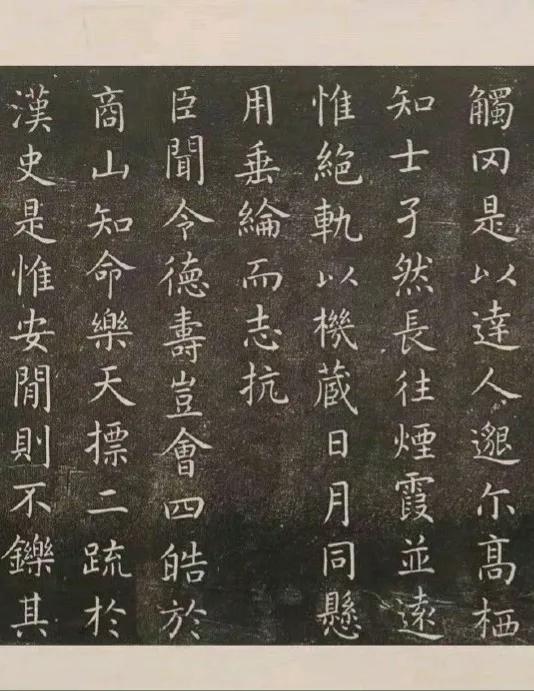 觸罔是以達人邈尓高栖
知士孑然長往煙霞並遠
惟絕軌以機蔵日月同懸
用垂綸而志抗
臣聞令德壽豈會四皓於
商山知命樂天摽二疏於
漢史是惟安閒則不鑠其